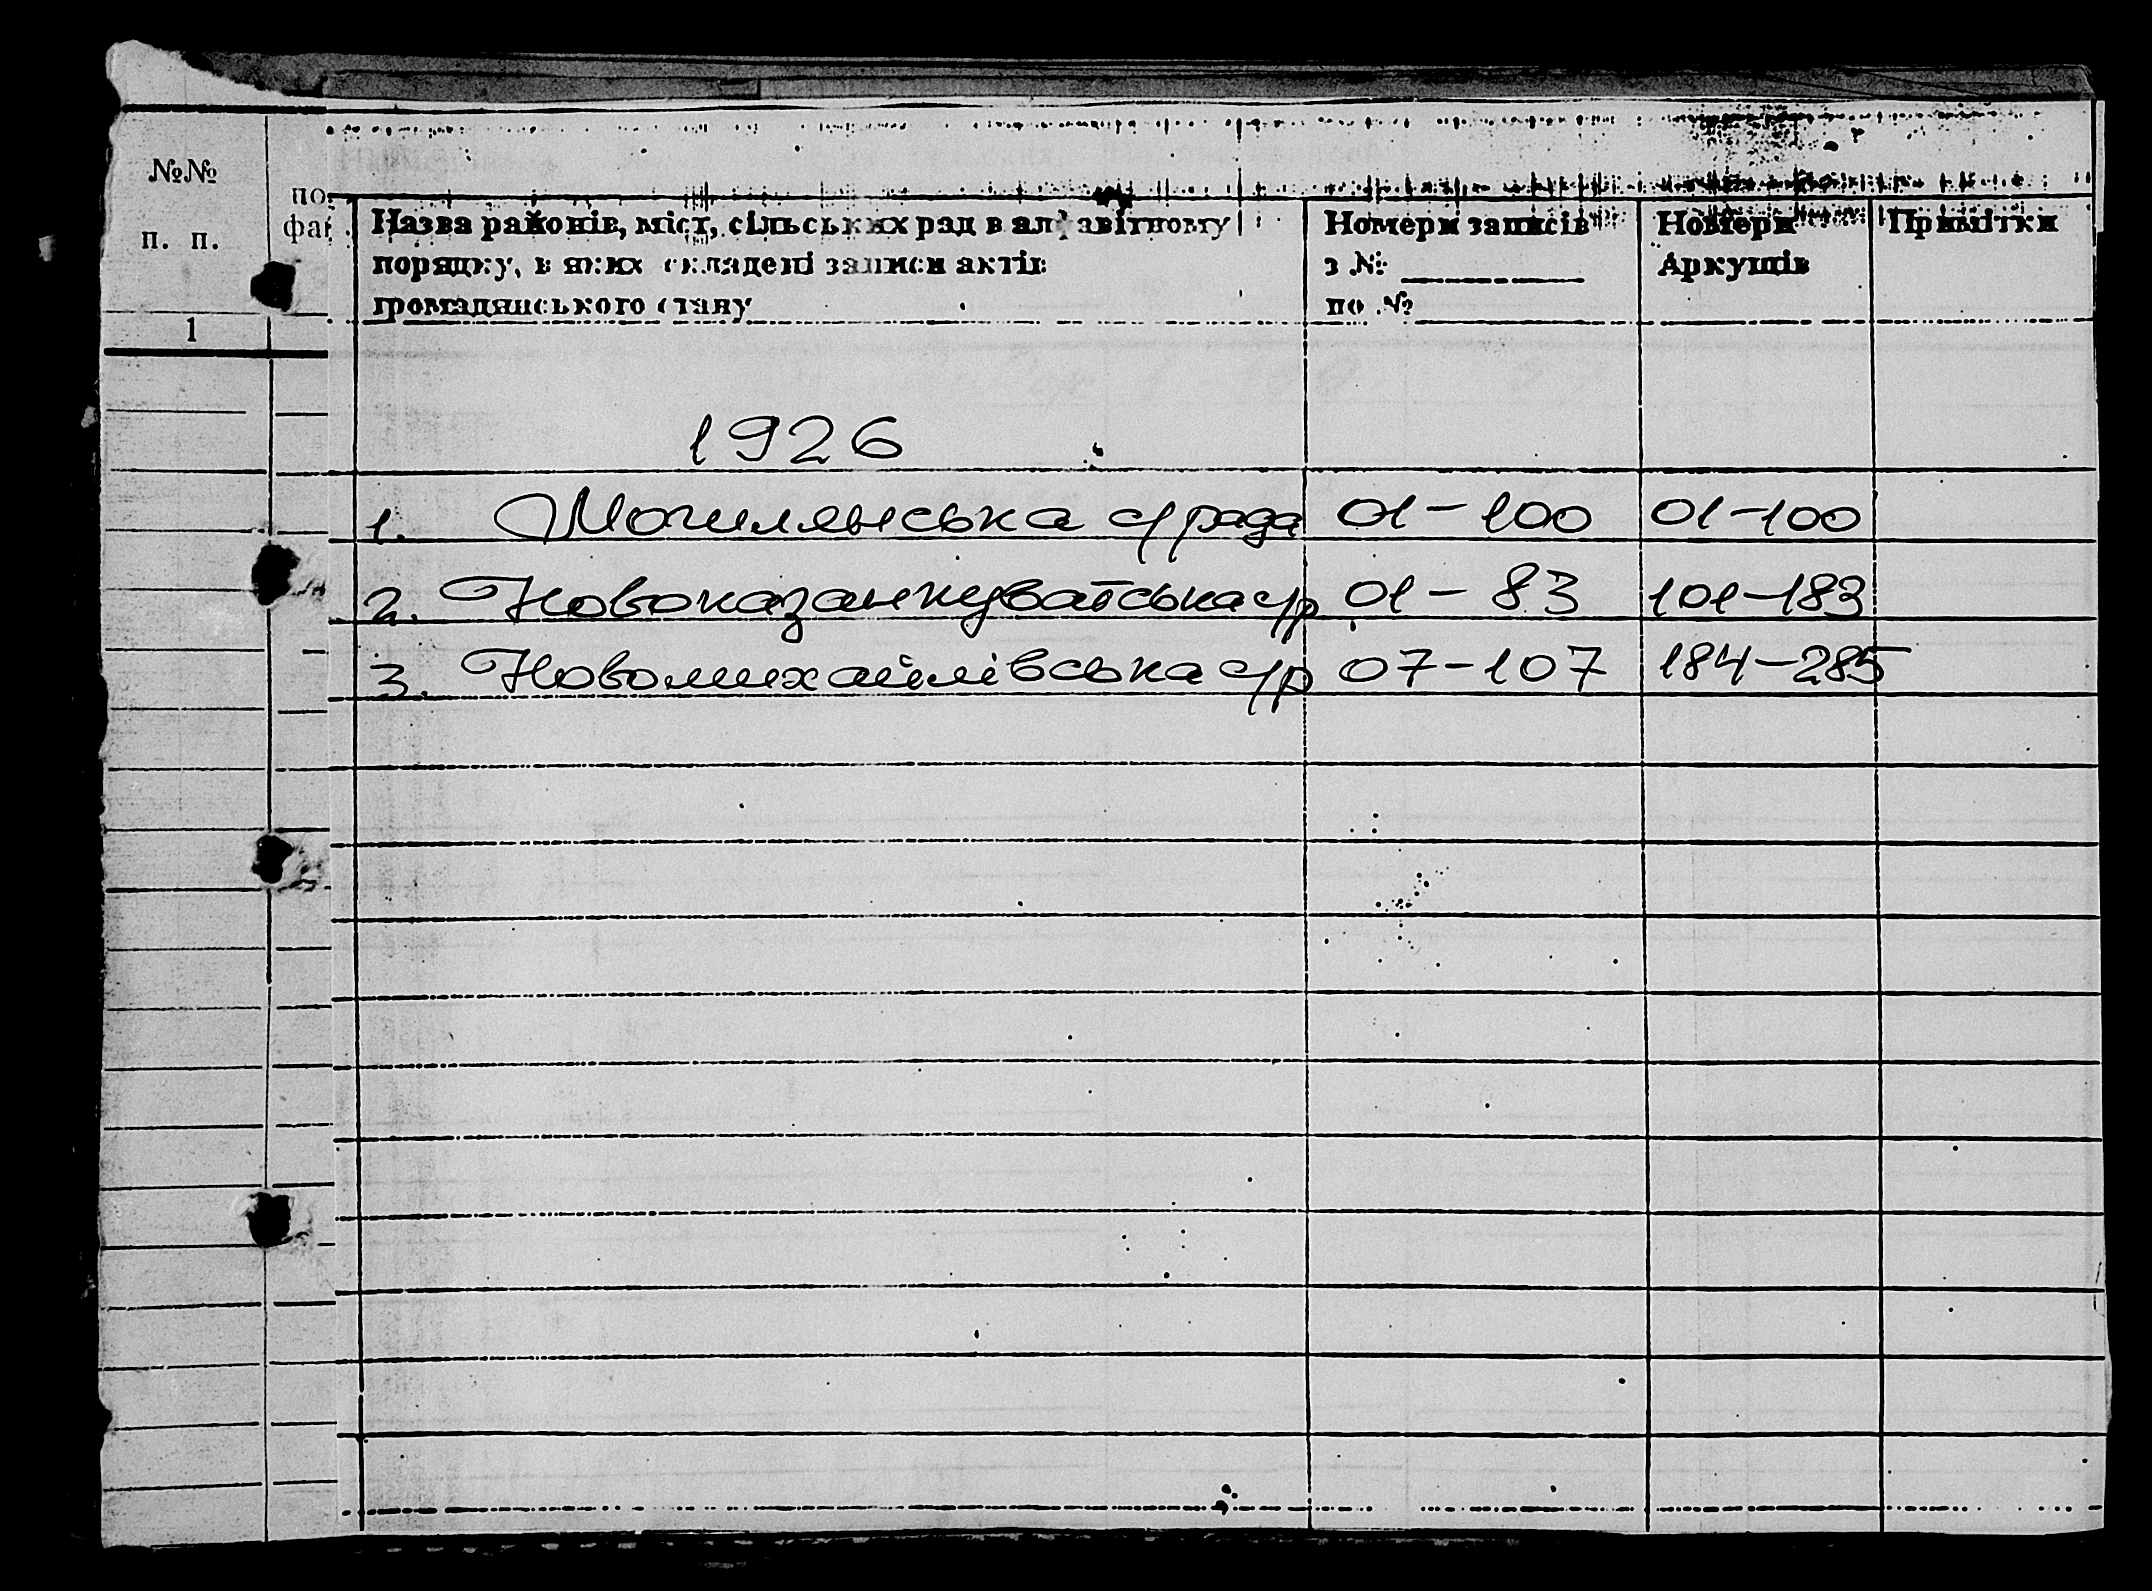 №№
п. п.
1
по
фаг
Назва районів, міст, сільських рад в алфавітному
порядку, в яких складені записи актів
громадянського стану
Номери записів
з №
по №
Номери
Аркушів
Примітки
1926
1. Могилянська с/рада 01-100 01-100
2. Новоказанкуватська с/р 01-83 101-183
3. Новомихайлівська с/р 07-107 184-285